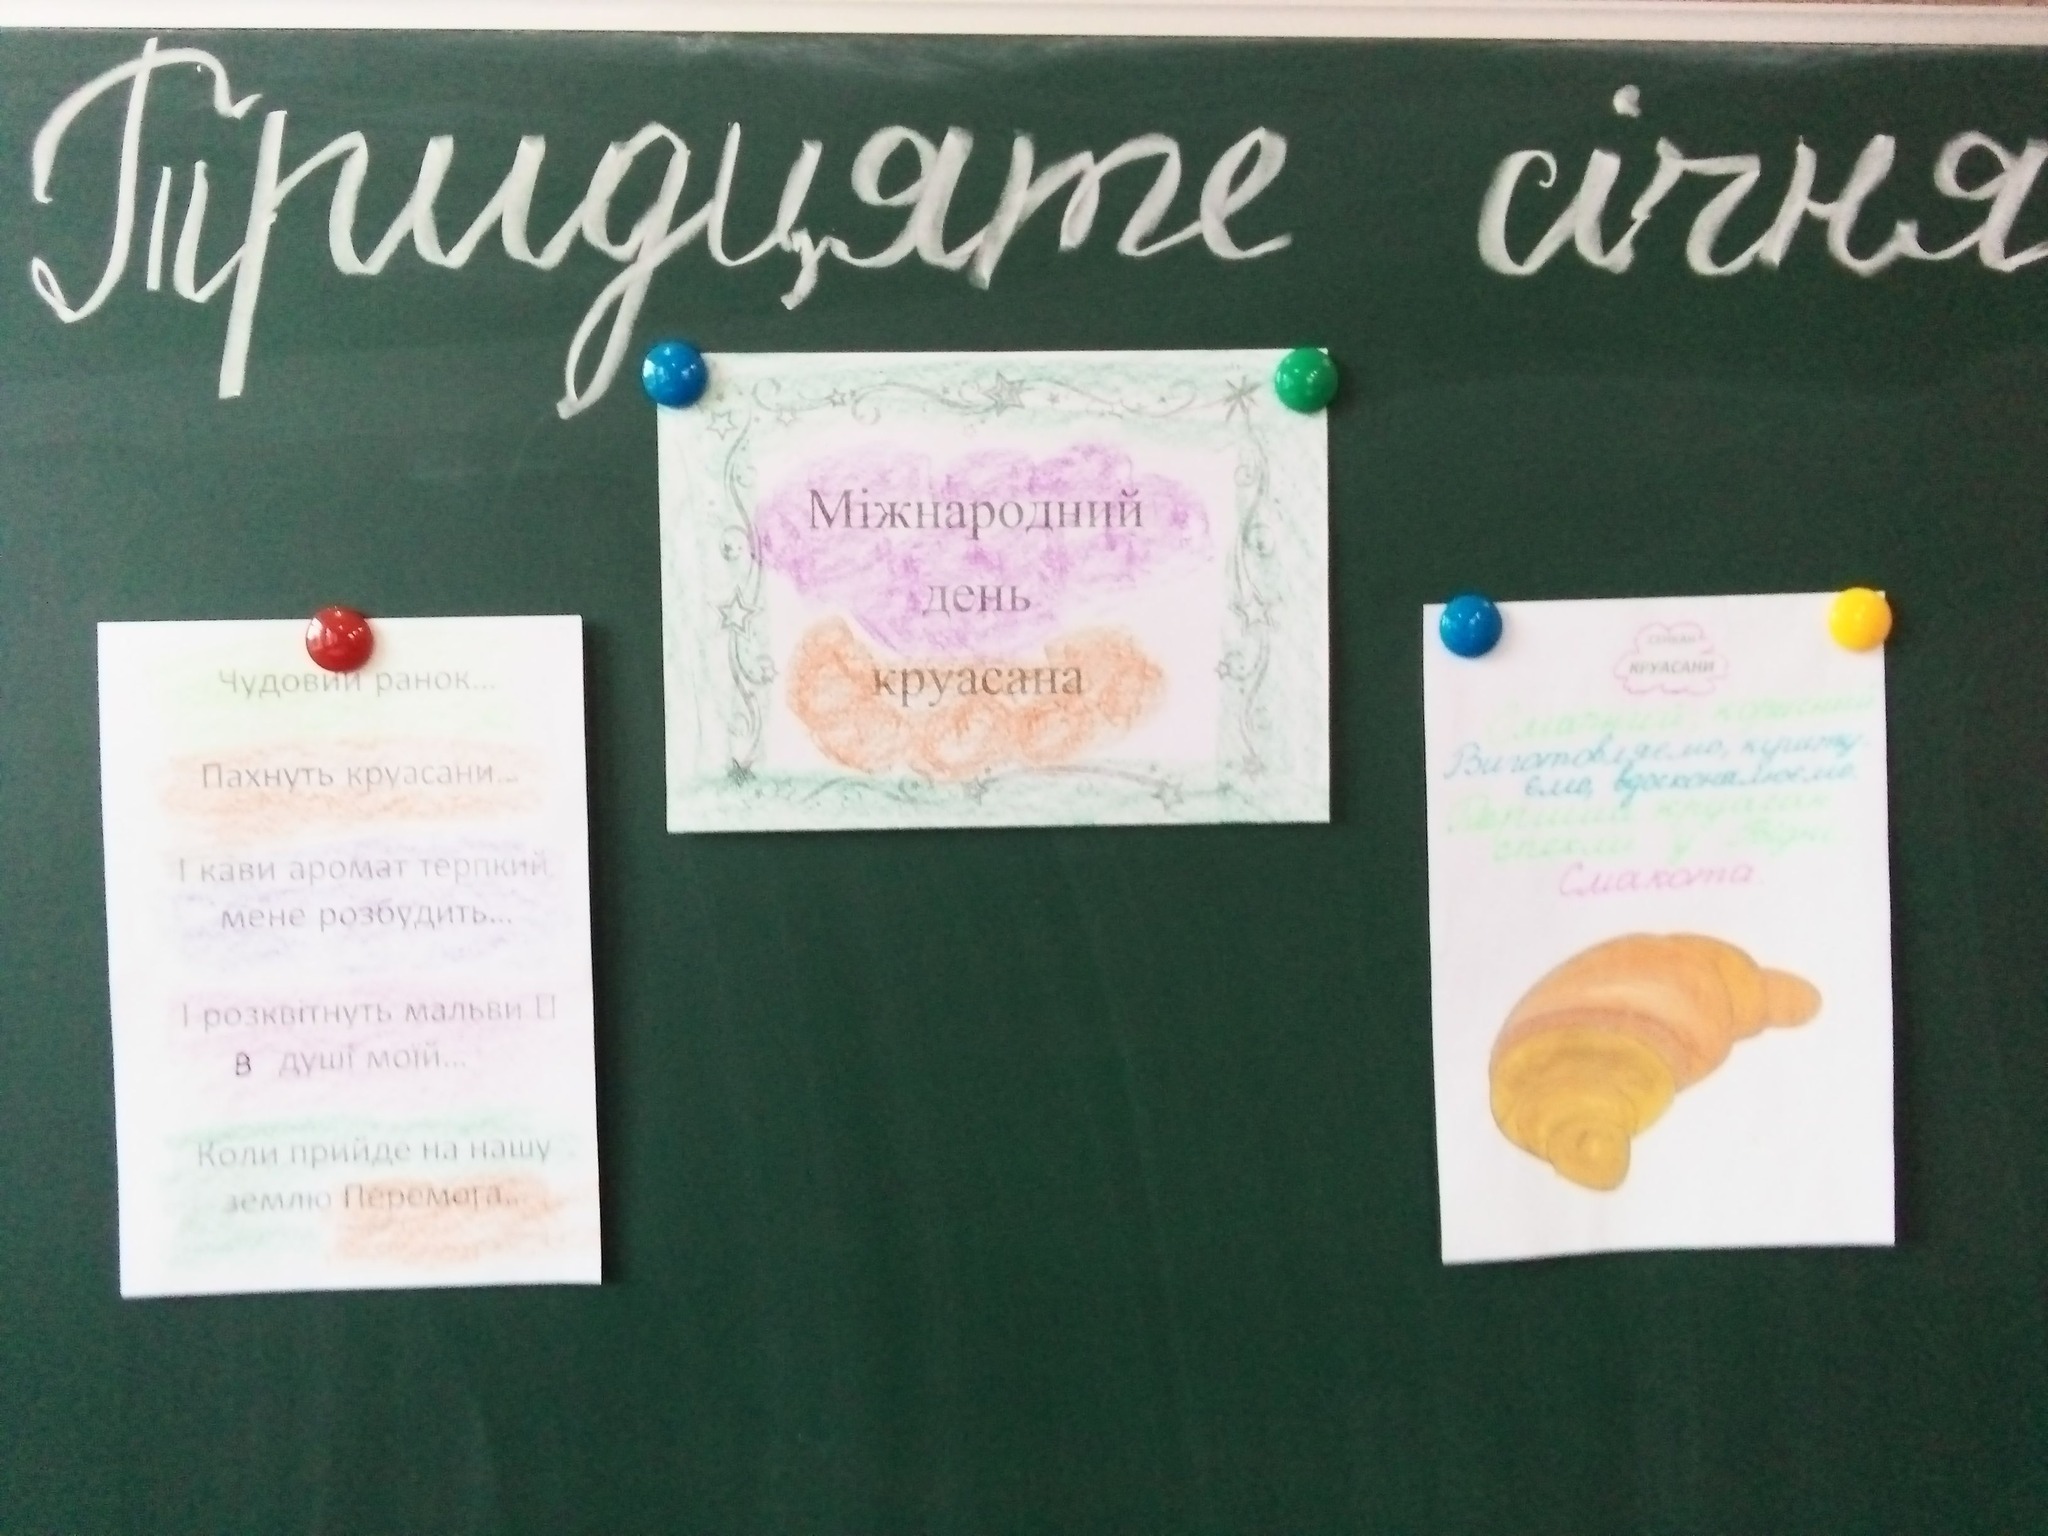 Тридцяте січня
Міжнародний
день
круасана
Чудовий ранок...
Пахнуть круасани...
І кави аромат терпкий
мене розбудить...
І розквітнуть мальви
в душі моїй...
Коли прийде на нашу
землю Перемога...
КРУАСАНИ
Смачний, корисний
Виготовляємо, купиту-
ємо, вдосконалюємо.
круасан
спекли у Відні
Смакота